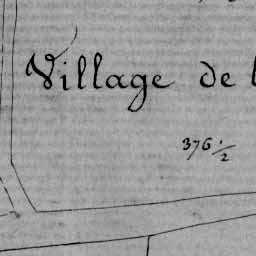 Village de l
376 1/2